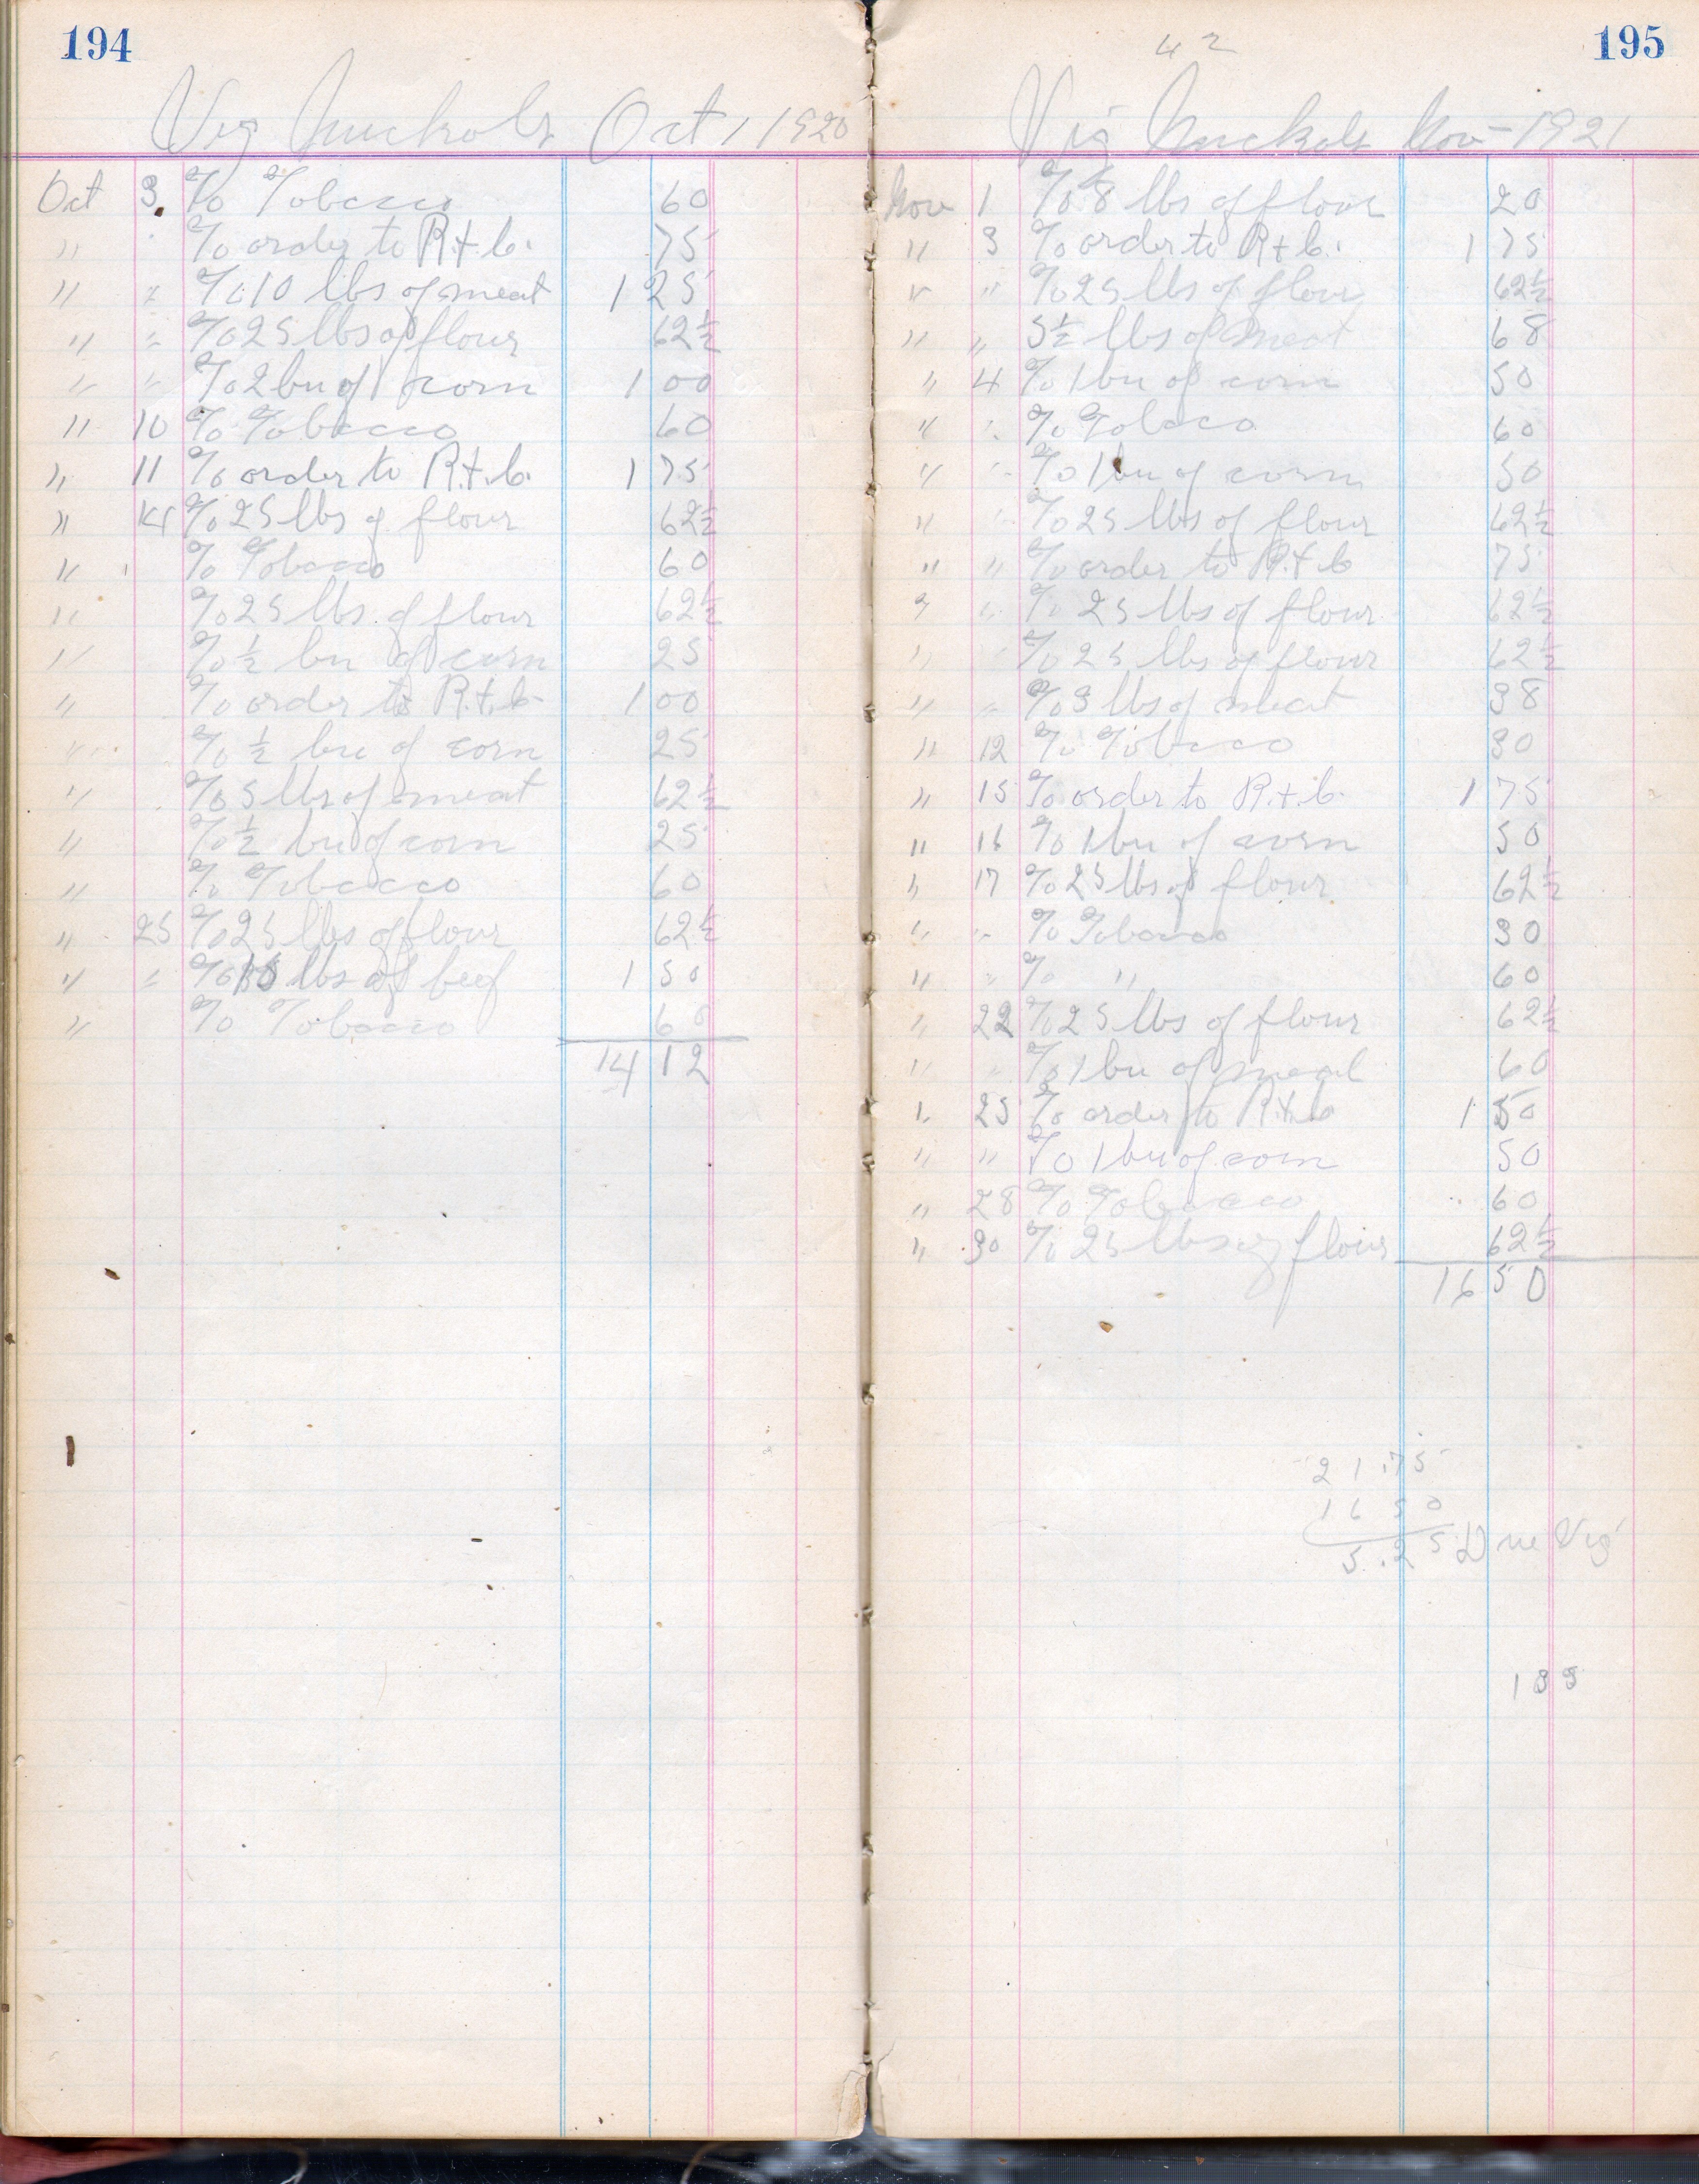 194
Vig Nuckols Oct 1 1920
Oct 3 To Tobacco 60
" " To order to R.+.C. 75
" " To 10 lbs of meat 1 25
" " To 25 lbs of flour 62½
" " To 2 bu of corn 1 00
" 10 To Tobacco 60
" 11 To order to R.+.C. 1 75
" 14 To 25 lbs of flour 62½
" To Tobacco 60
" To 25 lbs of flour 62½
" To ½ bu of corn 25
" To order to R.+.C. 1 00
" To ½ bu of corn 25
" To 5 lbs of meat 62½
" To ½ bu of corn 25
" To Tobacco 60
" 25 To 25 lbs of flour 62½
" " To lbs of beef 1 50
" To Tobacco 60
14 12
195
42
Vig Nuckols Nov - 1921
Nov 1 To 8 lbs of flour 20
" 3 To order to R+C. 1 75
" " To 25 lbs of flour 62½
" " 5½ lbs of meat 68
" 4 To 1 bu of corn 50
" " To Tobaco 60
" " To 1 bu of corn 50
" " To 25 lbs of flour 62½
" " To order to R.+C 75
" " To 25 lbs of flour 62½
" " To 25 lbs of flour 62½
" " To 3 lbs of meat 38
" 12 To Tobacco 30
" 15 To order to R.+.C. 1 75
" 16 To 1 bu of corn 50
" 17 To 25 lbs of flour 62½
" " To Tobacco 30
" " To " 60
" 22 To 25 lbs of flour 62½
" " To 1 bu of meal 60
" 25 To order to R.+.C 1 50
" " To 1 bu of corn 50
" 28 To Tobacco 60
" 30 To 25 lbs of flour 62½
16 50
21.75
16 50
5.25 Due Vig
133